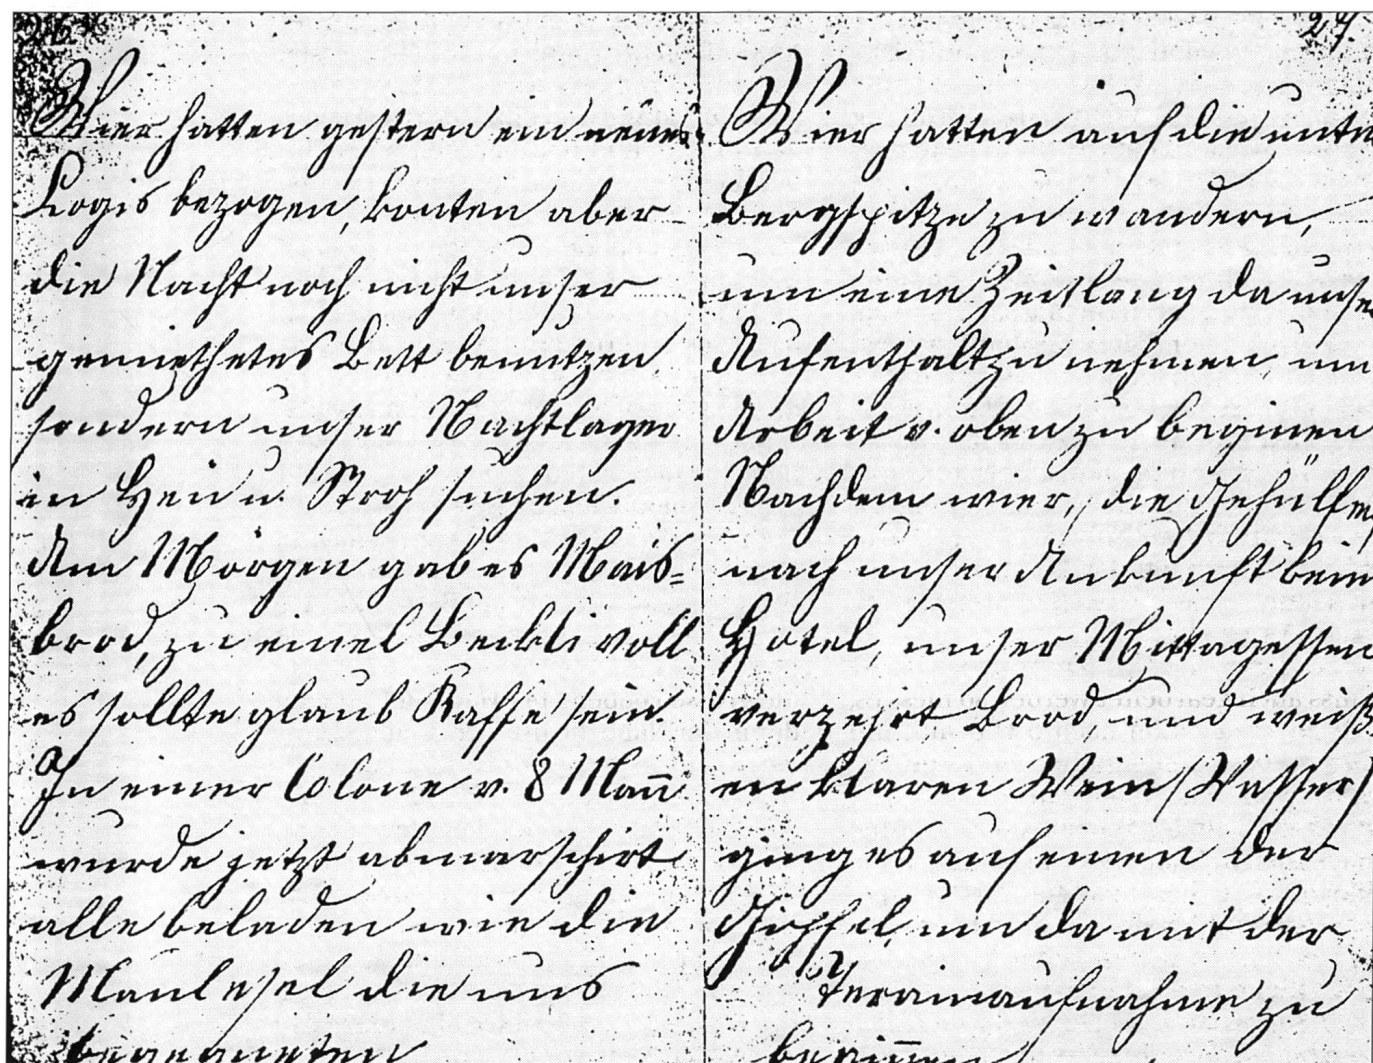 26.
Wier hatten gestern ein neues
Logis bezogen, konten aber
die Nacht noch nicht unser
gemiethetes Bett benutzen,
sondern unser Nachtlager
in Heu u. Stroh suchen.
Am Morgen gab es Mais=
brod, zu einel Beckli voll
es sollte glaub Kaffe sein.
In einer Colone v. 8 Man̄
wurde jetzt abmarschirt,
alle beladen wie die
Maulesel die uns
begegneten
27.
Wier hatten auf die unte
Bergspitze zu wandern,
um eine Zeitlang da unse
Aufenthalt zu nehmen, um
Arbeit v. oben zu beginen
Nachdem wier, die Gehülfen
nach unser Ankunft beim
Hotel, unser Mittagessen
verzehrt Brod und weiß
en klaren Wein (Wasser)
ging es auf einen der
Gipfel, um da mit der
Terainaufnahme zu
begin̄en